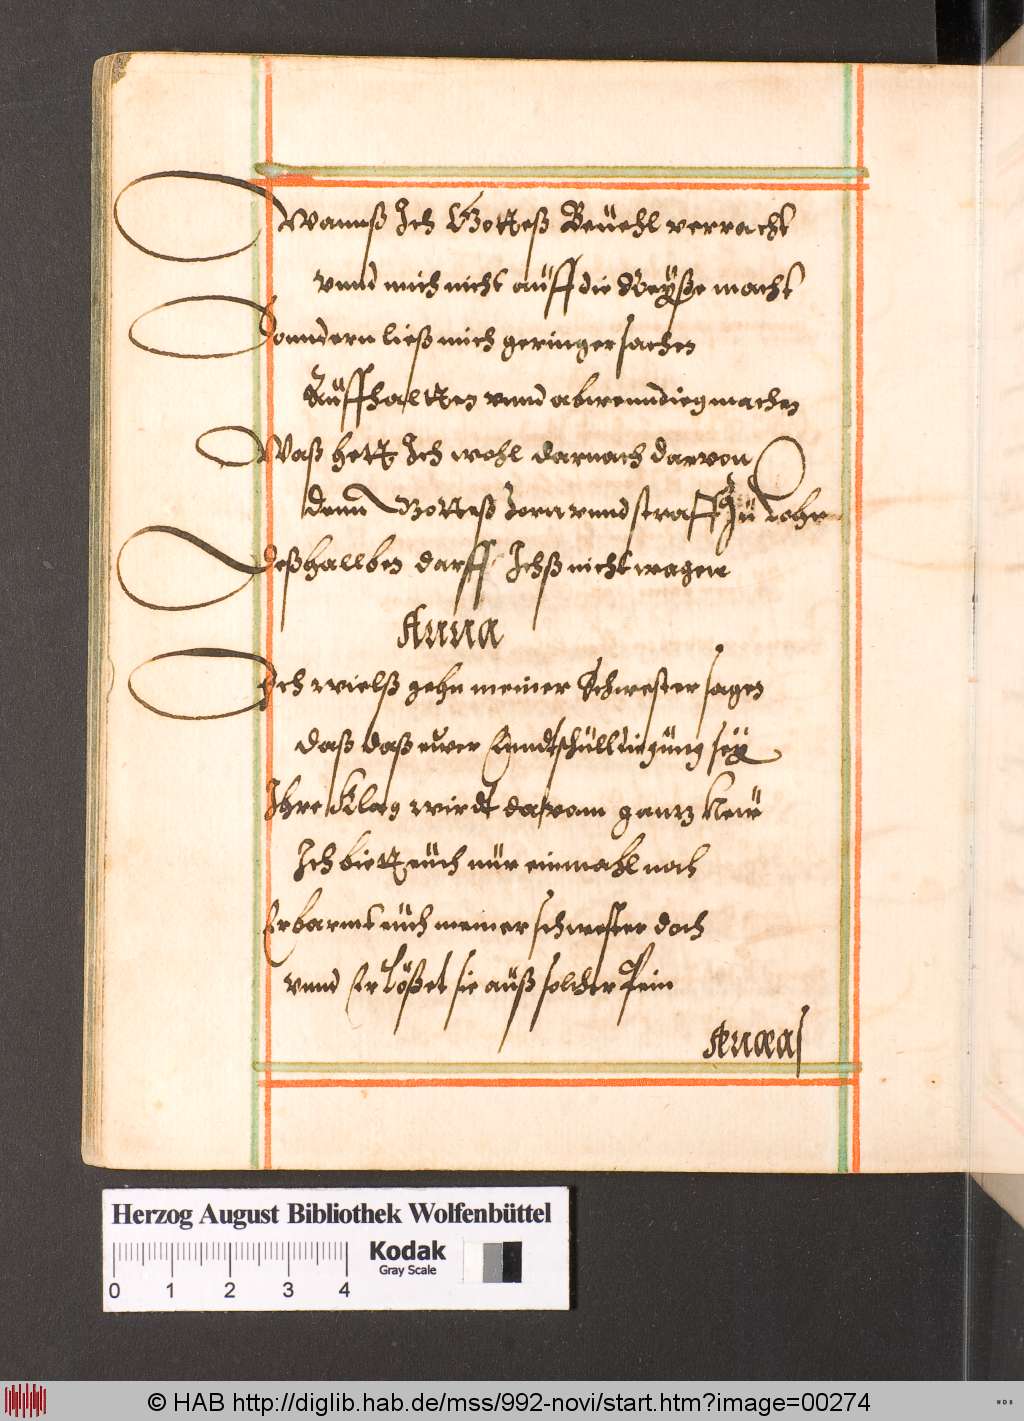 Wannß Ich Gotteß Beuehl verracht
vnnd mich nicht auff die Reyße macht
Sonndern ließ mich geringer sachen
Auffhaltten vnnd abwenndieg machen
Waß hett Ich wohl darnach darvon
denn Gotteß Zorn vnnd straff Zu Lohn
deßhallben darff Ichß nicht wagen
Anna
Ich wielß gehn meiner Schwester sagen
daß daß ewer Enndtschulldiegung sey
Ihre Klag wirdt davonn gantz New
Ich biett euch nur einmahl noch
Erbarmt euch meiner schwester doch
vnnd Erlößet sie auß solcher Pein
Aenaeas
Herzog August Bibliothek Wolfenbüttel
Kodak
Gray Scale
0 1 2 3 4
© HAB http://diglib.hab.de/mss/992-novi/start.htm?image=00274